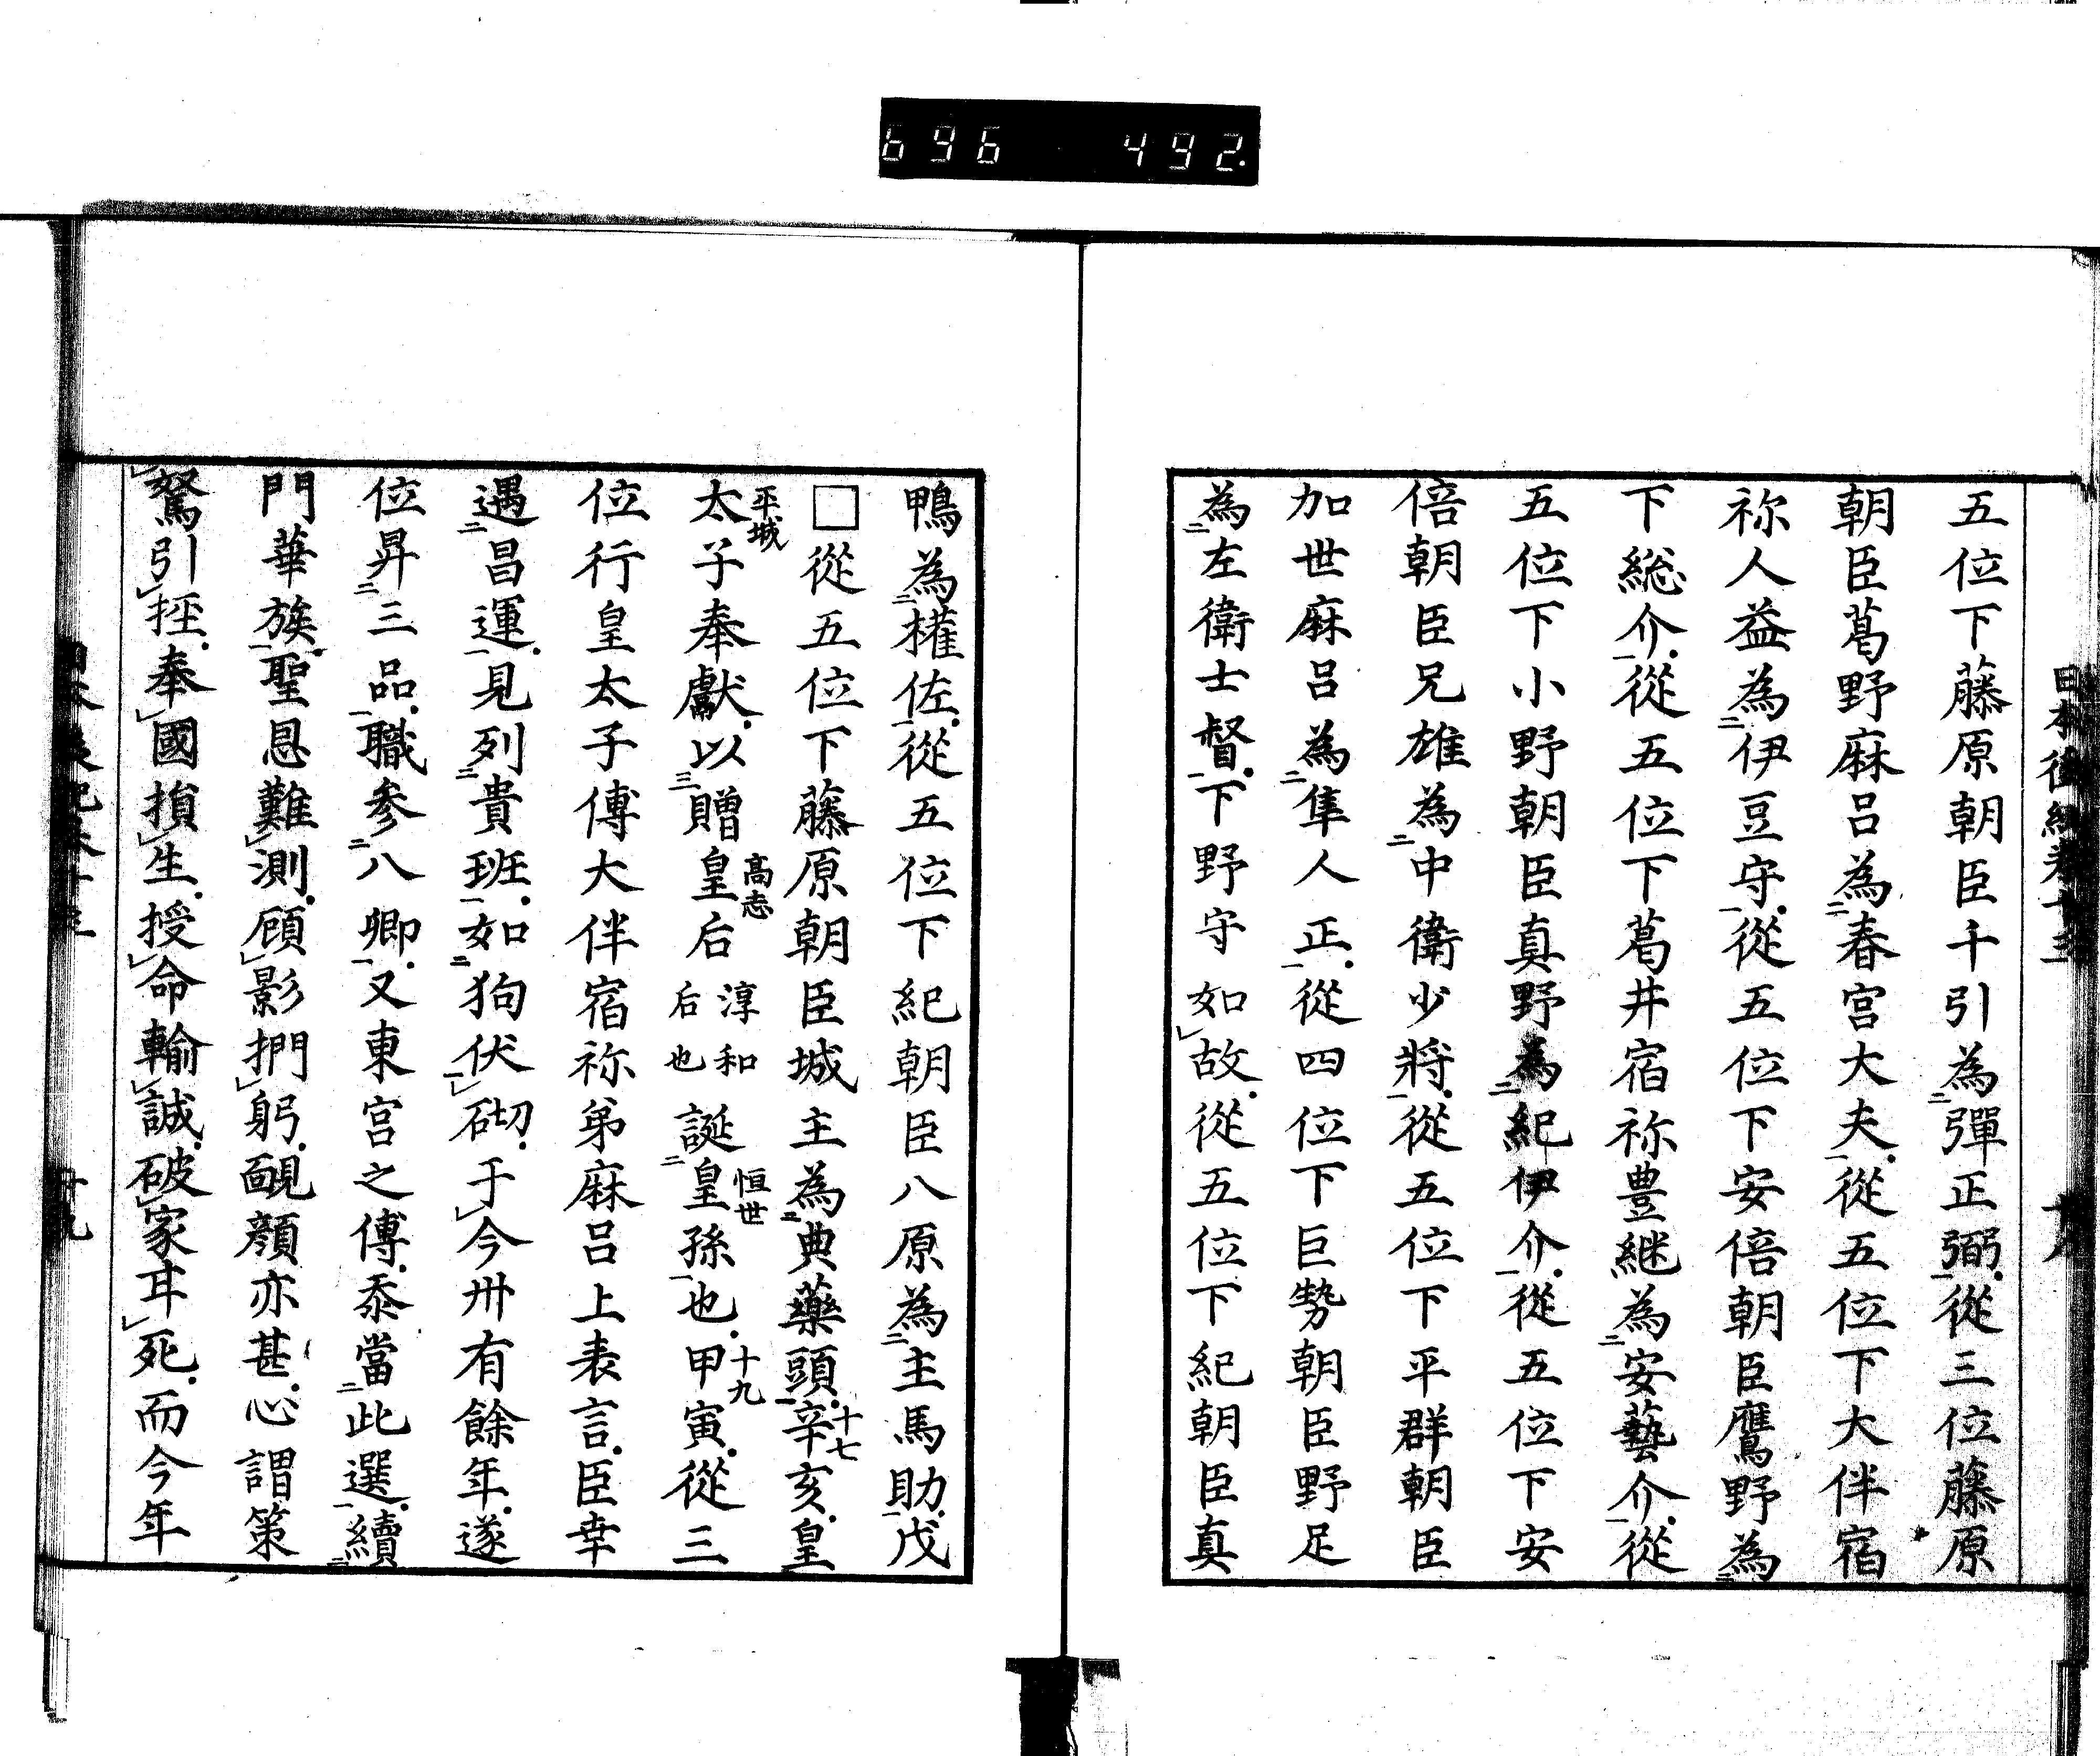 696 492
日本後紀卷十三
五位下藤原朝臣千引為二彈正弼一從三位藤原
朝臣葛野麻呂為二春宮大夫一從五位下大伴宿
祢人益為二伊豆守一從五位下安倍朝臣鷹野為二
下総介一從五位下葛井宿祢豊継為二安藝介一從
五位下小野朝臣真野為二紀伊介一從五位下安
倍朝臣兄雄為二中衛少將一從五位下平群朝臣
加世麻呂為二隼人正一從四位下巨勢朝臣野足
為二左衛士督一下野守如レ故從五位下紀朝臣真
鴨為二權佐一從五位下紀朝臣八原為二主馬助一戊
□從五位下藤原朝臣城主為二典藥頭一辛亥十七皇
太子平城奉獻以三贈皇后高志淳和后也誕二皇孫一恒世也甲寅十九從三
位行皇太子傅大伴宿祢弟麻呂上表言臣幸
遇二昌運一見列二貴班一如二狗伏一レ砌于レ今卅有餘年遂
位昇二三品一職參二八卿一又東宮之傅忝當二此選一續二
門華族一聖恩難レ測顧レ影捫レ躬靦顔亦甚心謂策
レ駑引レ挃奉レ國損レ生授レ命輸レ誠破レ家耳レ死而今年